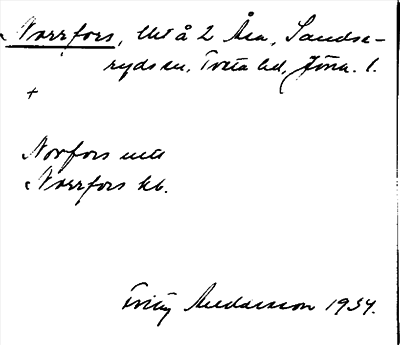 Norrfors, Ut å 2 Åsa, Sandse-
ryds sn, Tveta hd, Jönk. l.
+
Norfors utt
Norrfors kb.
Fritz Andersson 1934.